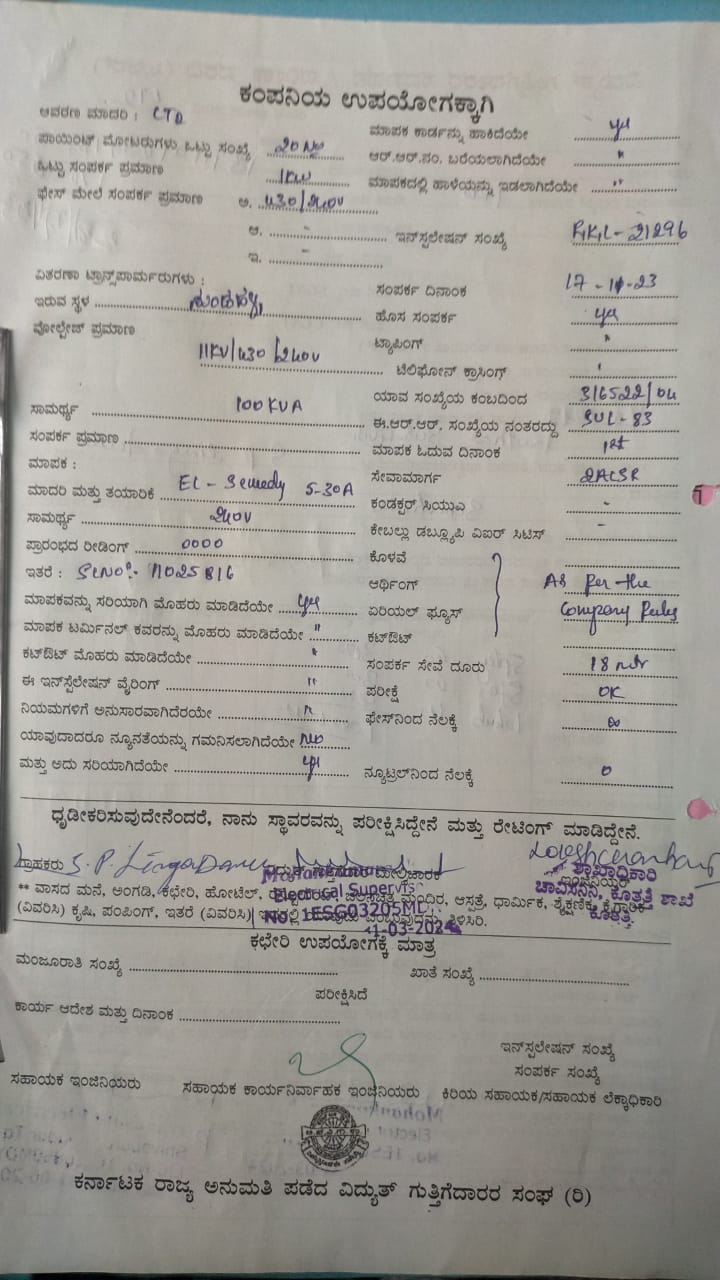 ಕಂಪನಿಯ ಉಪಯೋಗಕ್ಕಾಗಿ
ಆವರಣ ಮಾದರಿ : CTD
ಮಾಪಕ ಕಾರ್ಡನ್ನು ಹಾಕಿದೆಯೇ yes
ಪಾಯಿಂಟ್ ಮೋಟರುಗಳು ಒಟ್ಟು ಸಂಖ್ಯೆ 20
ಆರ್.ಆರ್.ನಂ. ಬರೆಯಲಾಗಿದೆಯೇ "
ಒಟ್ಟು ಸಂಪರ್ಕ ಪ್ರಮಾಣ 1KW
ಮಾಪಕದಲ್ಲಿ ಹಾಳೆಯನ್ನು ಇಡಲಾಗಿದೆಯೇ "
ಫೇಸ್ ಮೇಲೆ ಸಂಪರ್ಕ ಪ್ರಮಾಣ ಅ. 430/240V
ಆ. - ಇನ್‌ಸ್ಟಲೇಷನ್ ಸಂಖ್ಯೆ 21296
ಇ. -
ವಿತರಣಾ ಟ್ರಾನ್ಸ್‌ಪಾರ್ಮರುಗಳು :
ಸಂಪರ್ಕ ದಿನಾಂಕ 17-11-23
ಇರುವ ಸ್ಥಳ
ಹೊಸ ಸಂಪರ್ಕ yes
ವೋಲ್ಟೇಜ್ ಪ್ರಮಾಣ 11KV/430/240V
ಟ್ಯಾಪಿಂಗ್ "
ಟೆಲಿಫೋನ್ ಕ್ರಾಸಿಂಗ್
ಯಾವ ಸಂಖ್ಯೆಯ ಕಂಬದಿಂದ 316522/04
ಸಾಮರ್ಥ್ಯ 100KVA
ಈ.ಆರ್.ಆರ್. ಸಂಖ್ಯೆಯ ನಂತರದ್ದು SUL-83
ಸಂಪರ್ಕ ಪ್ರಮಾಣ
ಮಾಪಕ ಓದುವ ದಿನಾಂಕ 1st
ಮಾಪಕ :
ಸೇವಾಮಾರ್ಗ 2ACSR
ಮಾದರಿ ಮತ್ತು ತಯಾರಿಕೆ 5-30A
ಕಂಡಕ್ಟರ್ ಸಿಯುಎ -
ಸಾಮರ್ಥ್ಯ 240V
ಕೇಬಲ್ಲು ಡಬ್ಲ್ಯೂಪಿ ವಿಐಆರ್ ಸಿಟಿಸ್ -
ಪ್ರಾರಂಭದ ರೀಡಿಂಗ್ 0000
ಕೊಳವೆ
ಇತರೆ : SLNo:- 11025816
ಆರ್ಥಿಂಗ್ As Per the
ಮಾಪಕವನ್ನು ಸರಿಯಾಗಿ ಮೊಹರು ಮಾಡಿದೆಯೇ yes
ಏರಿಯಲ್ ಫ್ಯೂಸ್ Company Rules
ಮಾಪಕ ಟರ್ಮಿನಲ್ ಕವರನ್ನು ಮೊಹರು ಮಾಡಿದೆಯೇ "
ಕಟ್‌ಔಟ್
ಕಟ್‌ಔಟ್ ಮೊಹರು ಮಾಡಿದೆಯೇ "
ಸಂಪರ್ಕ ಸೇವೆ ದೂರು 18 mtr
ಈ ಇನ್‌ಸ್ಟಲೇಷನ್ ವೈರಿಂಗ್ "
ಪರೀಕ್ಷೆ OK
ನಿಯಮಗಳಿಗೆ ಅನುಸಾರವಾಗಿದೆರಯೇ "
ಫೇಸ್‌ನಿಂದ ನೆಲಕ್ಕೆ ∞
ಯಾವುದಾದರೂ ನ್ಯೂನತೆಯನ್ನು ಗಮನಿಸಲಾಗಿದೆಯೇ No
ಮತ್ತು ಅದು ಸರಿಯಾಗಿದೆಯೇ yes
ನ್ಯೂಟ್ರಲ್‌ನಿಂದ ನೆಲಕ್ಕೆ 0
ಧೃಡೀಕರಿಸುವುದೇನೆಂದರೆ, ನಾನು ಸ್ಥಾವರವನ್ನು ಪರೀಕ್ಷಿಸಿದ್ದೇನೆ ಮತ್ತು ರೇಟಿಂಗ್ ಮಾಡಿದ್ದೇನೆ.
ಗ್ರಾಹಕರು
ಶಾಖಾಧಿಕಾರಿ
ಇಂಜಿನಿಯರ್
Electrical Supervis
ಚಾವಿಸನಿನಿ, ಕೊತ್ತತ್ತಿ ಶಾಖೆ
ಕೊತ್ತತ್ತಿ.
** ವಾಸದ ಮನೆ, ಅಂಗಡಿ, ಕಛೇರಿ, ಹೋಟೆಲ್, ಮಂದಿರ, ಆಸ್ಪತ್ರೆ, ಧಾರ್ಮಿಕ, ಶೈಕ್ಷಣಿಕ, ಕೈಗಾರಿಕೆ
No. 1ESG03205ML
(ವಿವರಿಸಿ) ಕೃಷಿ, ಪಂಪಿಂಗ್, ಇತರೆ (ವಿವರಿಸಿ) ತಿಳಿಸಿರಿ.
ಕಛೇರಿ ಉಪಯೋಗಕ್ಕೆ ಮಾತ್ರ
ಮಂಜೂರಾತಿ ಸಂಖ್ಯೆ
ಖಾತೆ ಸಂಖ್ಯೆ
ಪರೀಕ್ಷಿಸಿದೆ
ಕಾರ್ಯ ಆದೇಶ ಮತ್ತು ದಿನಾಂಕ
ಇನ್‌ಸ್ಟಲೇಷನ್ ಸಂಖ್ಯೆ
ಸಂಪರ್ಕ ಸಂಖ್ಯೆ
ಸಹಾಯಕ ಇಂಜಿನಿಯರು
ಸಹಾಯಕ ಕಾರ್ಯನಿರ್ವಾಹಕ ಇಂಜಿನಿಯರು
ಕಿರಿಯ ಸಹಾಯಕ/ಸಹಾಯಕ ಲೆಕ್ಕಾಧಿಕಾರಿ
ಕರ್ನಾಟಕ ರಾಜ್ಯ ಅನುಮತಿ ಪಡೆದ ವಿದ್ಯುತ್ ಗುತ್ತಿಗೆದಾರರ ಸಂಘ (ರಿ)